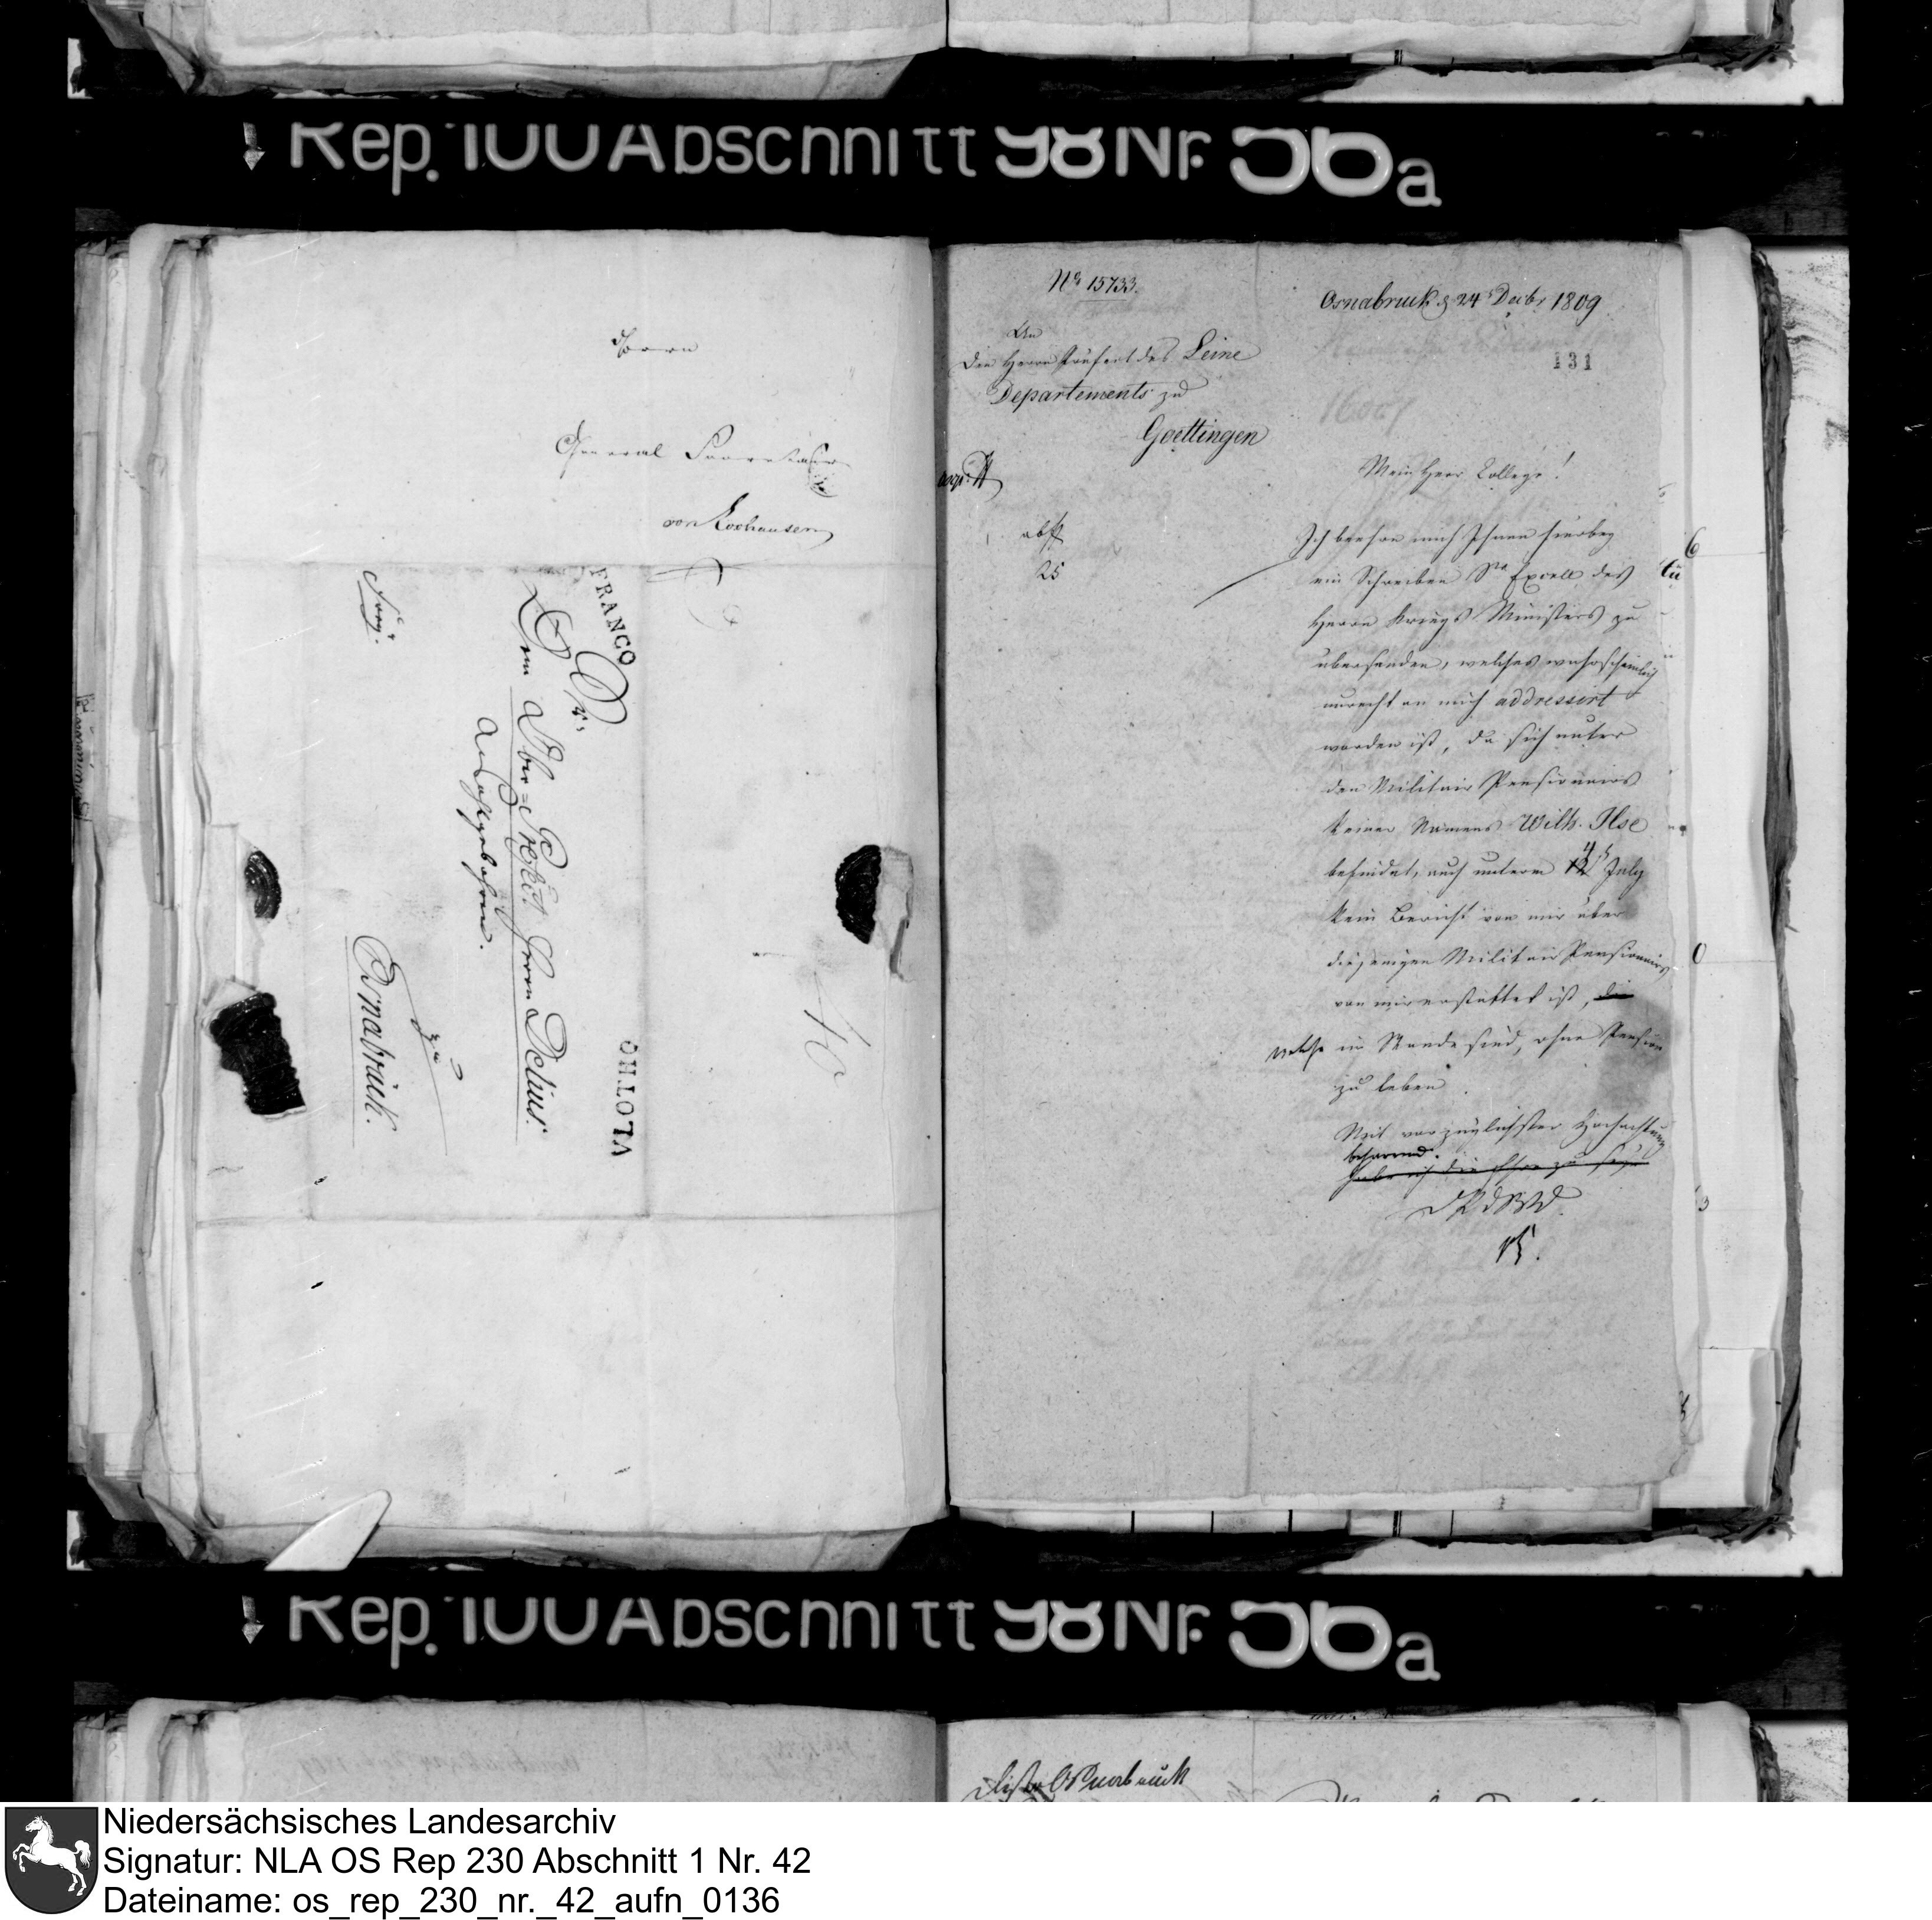 Rep. 100 Abschnitt 98 Nr. 56a
Herrn
General Secretair
von Korhausen
FRANCO
Sr.
Dem Ober-Präfect Herrn Delius.
zu
Osnabrück.
VLOTHO
No 15733.
Osnabruck d 24 Decbr 1809
131
An
Den Herrn Präfect des Leine
Departements zu
Goettingen
16007
Mein Herr College!
abs
25
Ich beehre mich Ihnen hierbey
ein Schreiben Sr Excell des
Herrn Kriegs Ministers zu
übersenden, welches wahrscheinlich
unrecht an mich addressirt
worden ist, da sich unter
den Militair Pensionairs
keiner Namens Wilh. Ilse
befindet, auch unterm July
kein Bericht von mir über
diejenigen Militair Pensionairs
von mir erstattet ist, die
welche im Stande sind, ohne Pension
zu leben
Mit vorzüglichster Hochachtung
beharrend.
habe ich die Ehre zu seyn
D P d W D.
Rep. 100 Abschnitt 98 Nr. 56a
District Osnabruck
Niedersächsisches Landesarchiv
Signatur: NLA OS Rep 230 Abschnitt 1 Nr. 42
Dateiname: os_rep_230_nr._42_aufn_0136